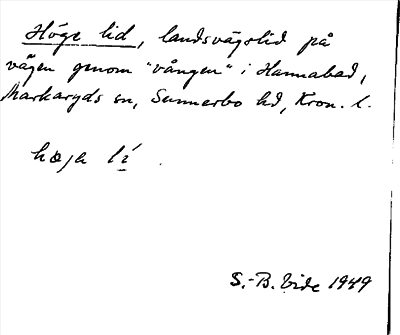 Höge lid, landsvägslid på
vägen genom "vången" i Hannabad,
Markaryds sn, Sunnerbo hd, Kron. l.
hœja lí
S.-B. Vide 1949